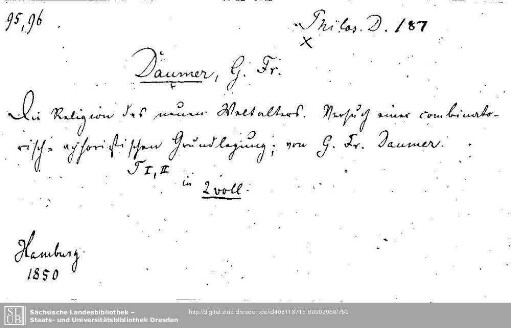 95,96
Philos. D. 187
x
Daumer, G. Fr.
Die Religion des neuen Weltalters. Versuch einer combinato-
risch-aphoristischen Grundlegung; von G. Fr. Daumer.
T I, II
in 2 voll.
Hamburg
1850
Sächsische Landesbibliothek –
Staats- und Universitätsbibliothek Dresden